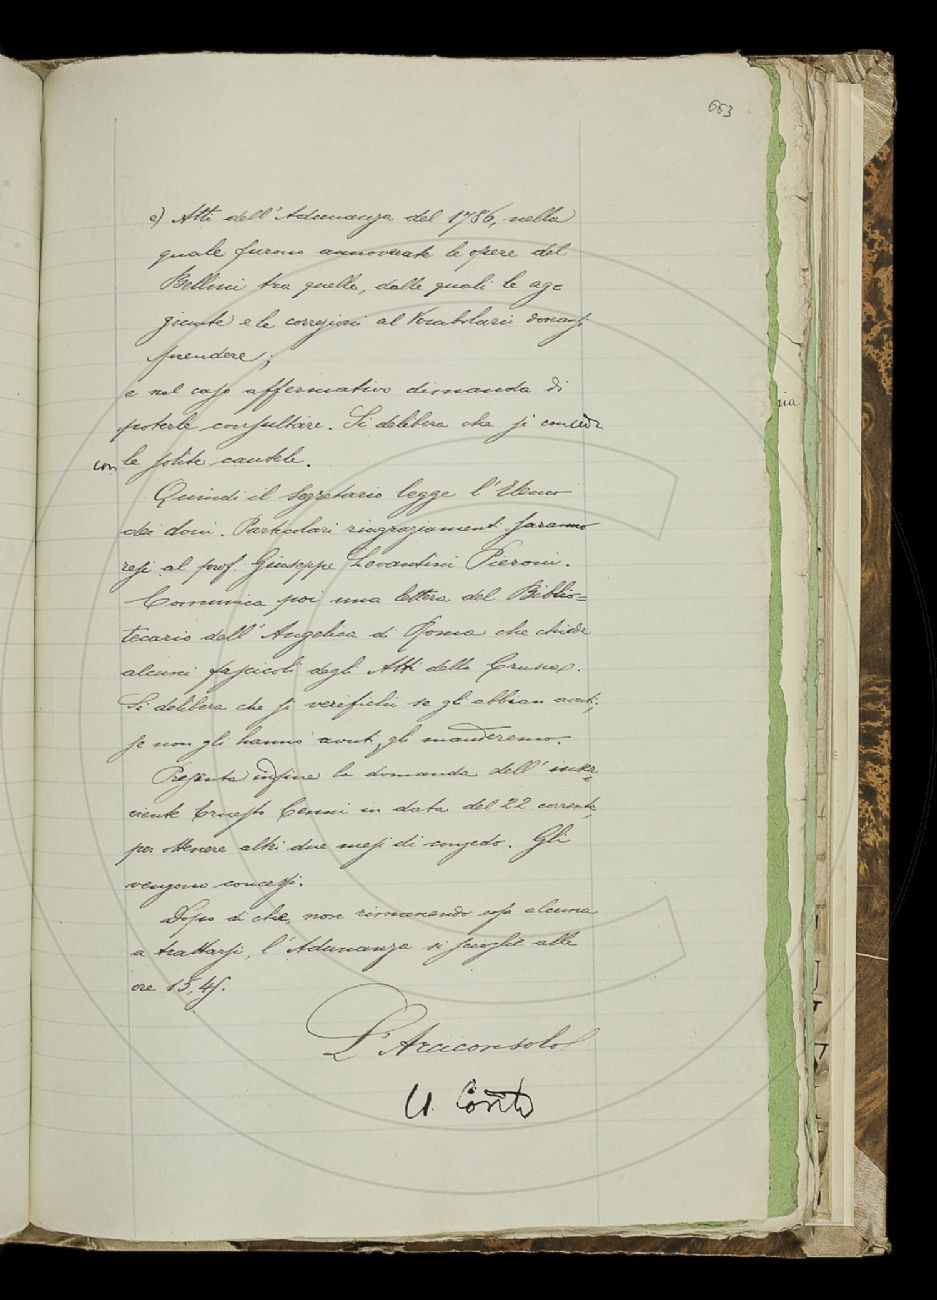 663
e) Atti dell'Adunanza del 1786, nella
quale furono annoverate le opere del
Bellini tra quelle, dalle quali le ag=
giunte e le correzioni al Vocabolario doveansi
prendere;
e nel caso affermativo dimanda di
poterle consultare. Si delibera che si concedi
con le solite cautele.
Quindi il Segretario legge l'Elenco
dei doni. Particolari ringraziamenti saranno
resi al prof. Giuseppe Levantini Pieroni.
Comunica poi una lettera del Biblio=
tecario dell'Angelica di Roma che chiede
alcuni fascicoli degli Atti della Crusca.
Si delibera che si verifichi se gli abbian avuti;
se non gli hanno avuti gli manderemo.
Presenta infine la domanda dell'inser=
viente Ernesto Cenni in data del 22 corrente,
per ottenere altri due mesi di congedo. Gli
vengono concessi.
Dopo di che, non rimanendo cosa alcuna
a trattarsi, l'Adunanza si scioglie alle
ore 15,45.
L'Arciconsolo
nia